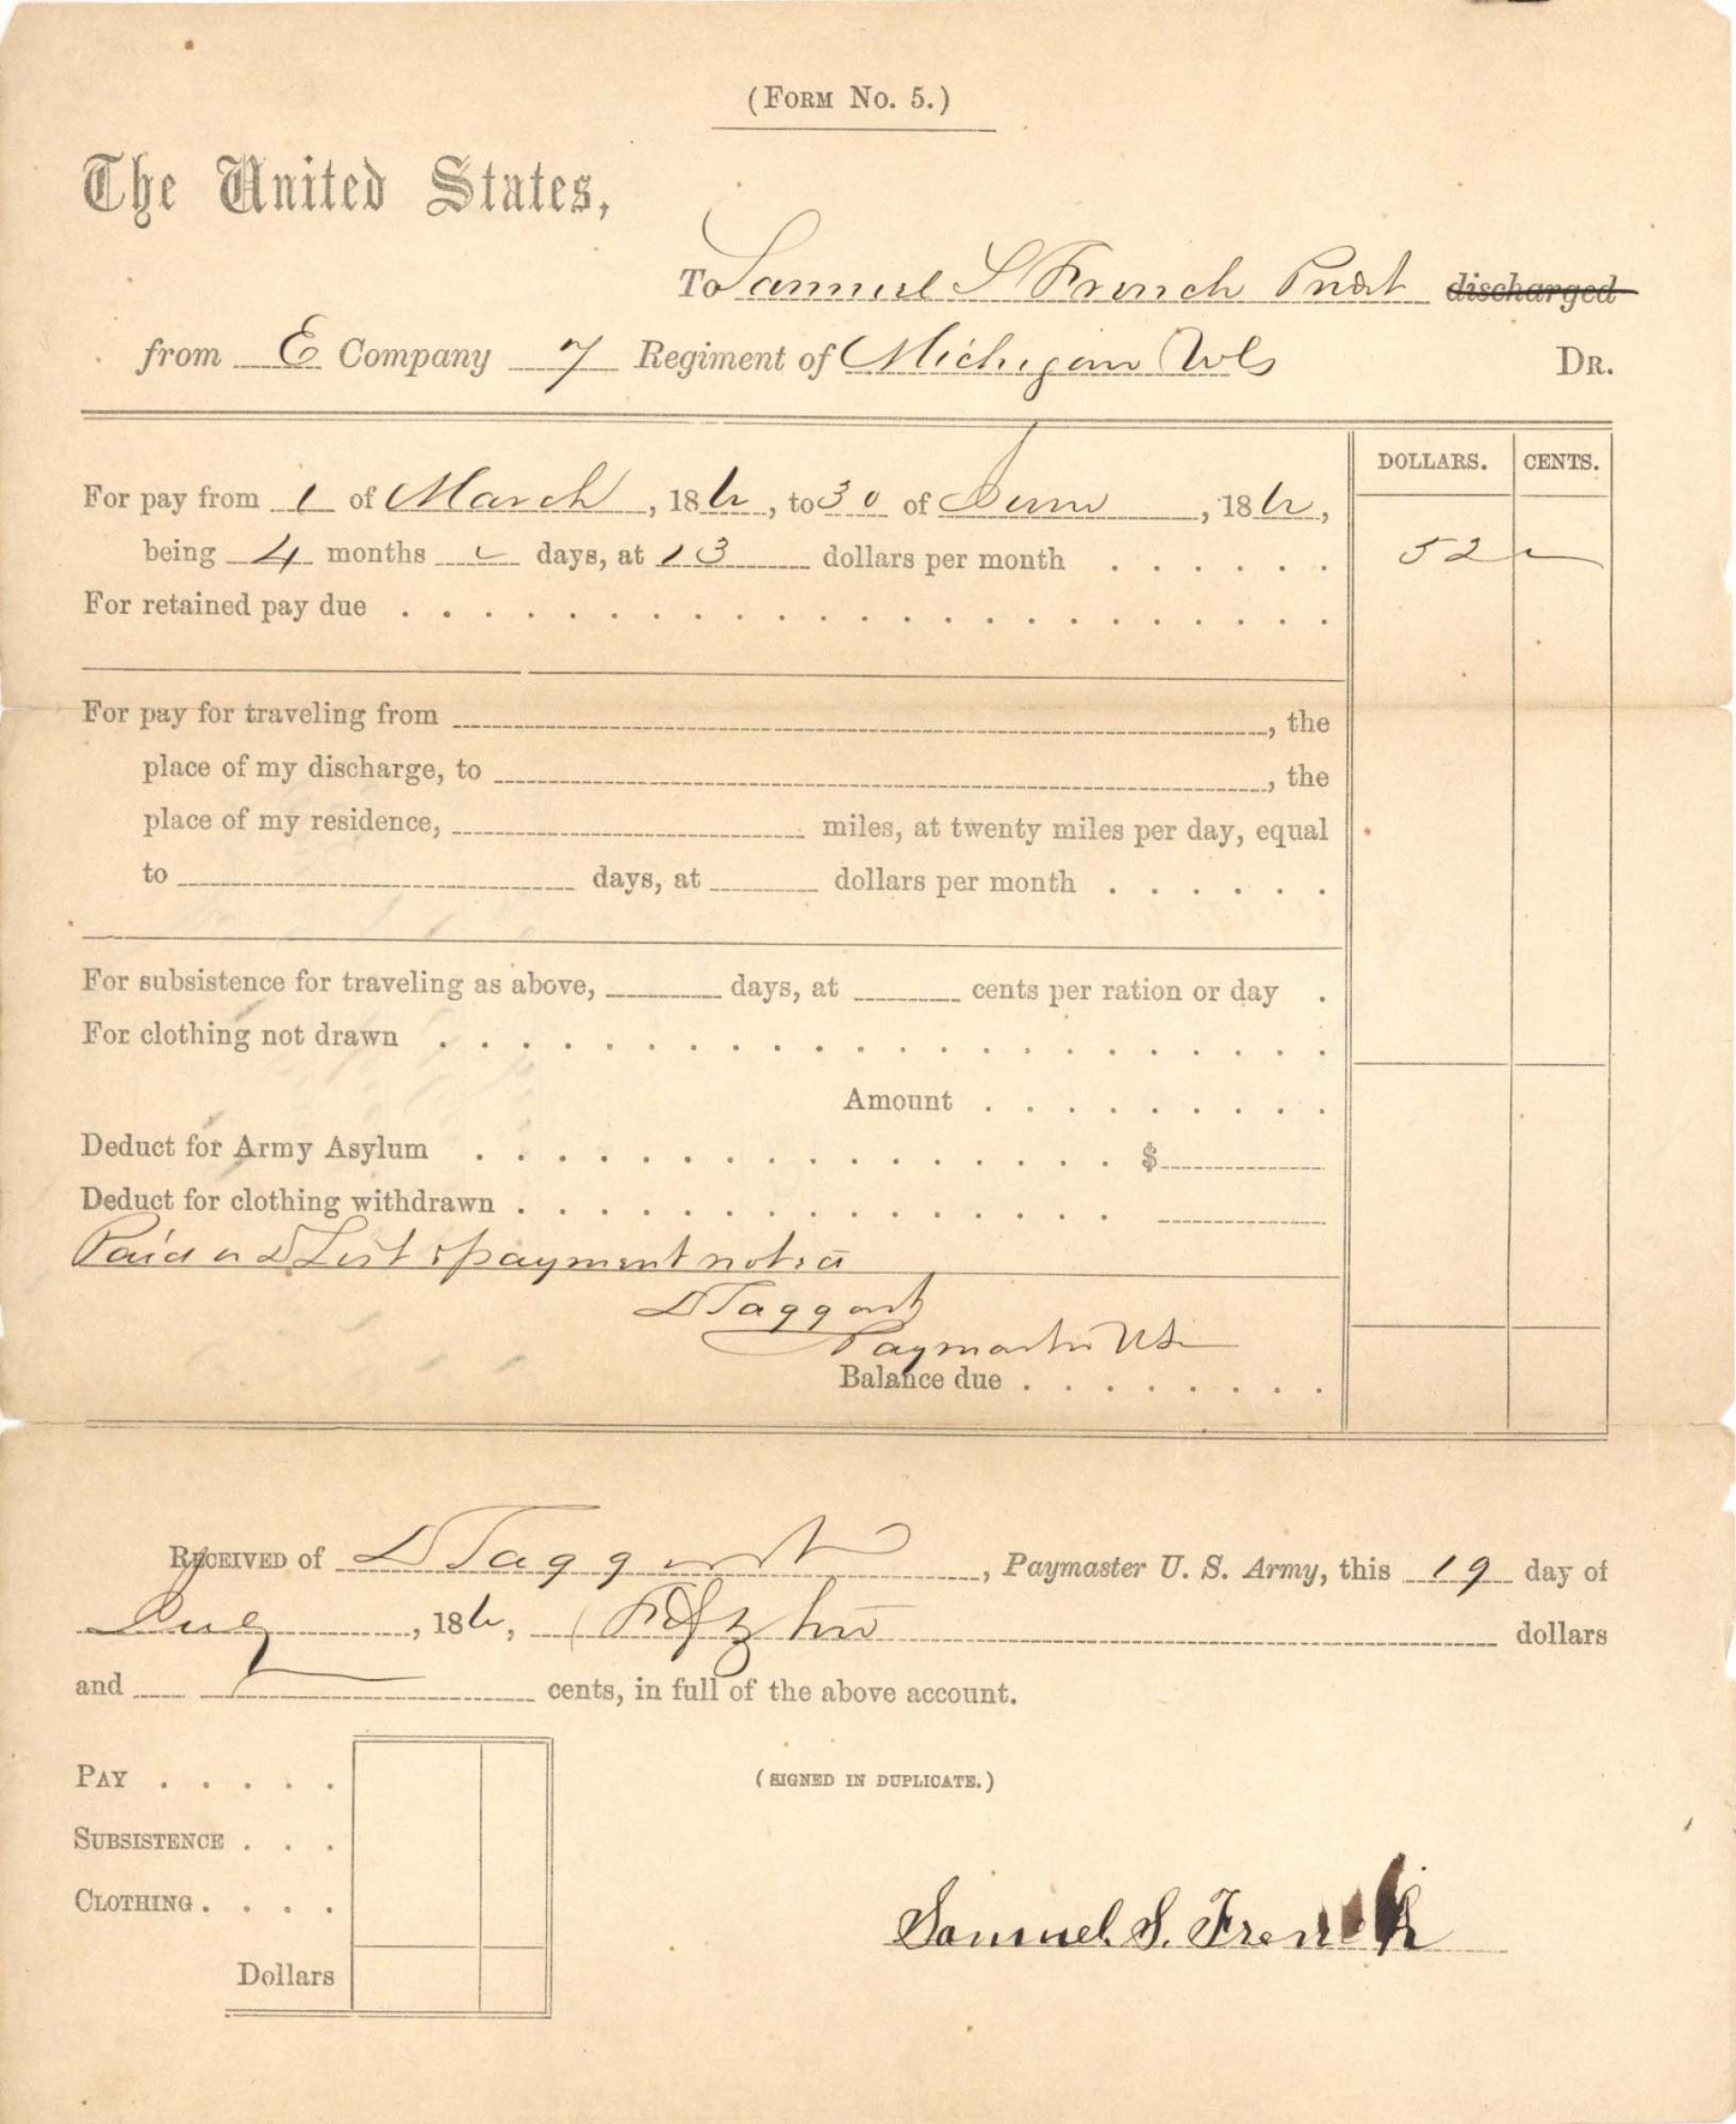 (FORM No. 5.)
The United States,
To Samuel S French Privt discharged
from E Company 7 Regiment of Michigan Vols DR.
DOLLARS. CENTS.
For pay from 1 of March, 186, to 30 of June, 186,
being 4 months days, at 13 dollars per month . . . . . . 52
For retained pay due . . . . . . . . . . . . . . . . . . . . . . .
For pay for traveling from , the
place of my discharge, to , the
place of my residence, miles, at twenty miles per day, equal
to days, at dollars per month . . . . . .
For subsistence for traveling as above, days, at cents per ration or day .
For clothing not drawn . . . . . . . . . . . . . . . . . . . . . .
Amount . . . . . . . . .
Deduct for Army Asylum . . . . . . . . . . . . . . . . $
Deduct for clothing withdrawn . . . . . . . . . . . . . . .
Paid payment
D Taggart
Paymaster
Balance due . . . . . . . .
RECEIVED of D Taggart, Paymaster U. S. Army, this 19 day of
186, Fifty two dollars
and cents, in full of the above account.
PAY . . . . .
(SIGNED IN DUPLICATE.)
SUBSISTENCE . . .
CLOTHING . . . .
Samuel S. French
Dollars